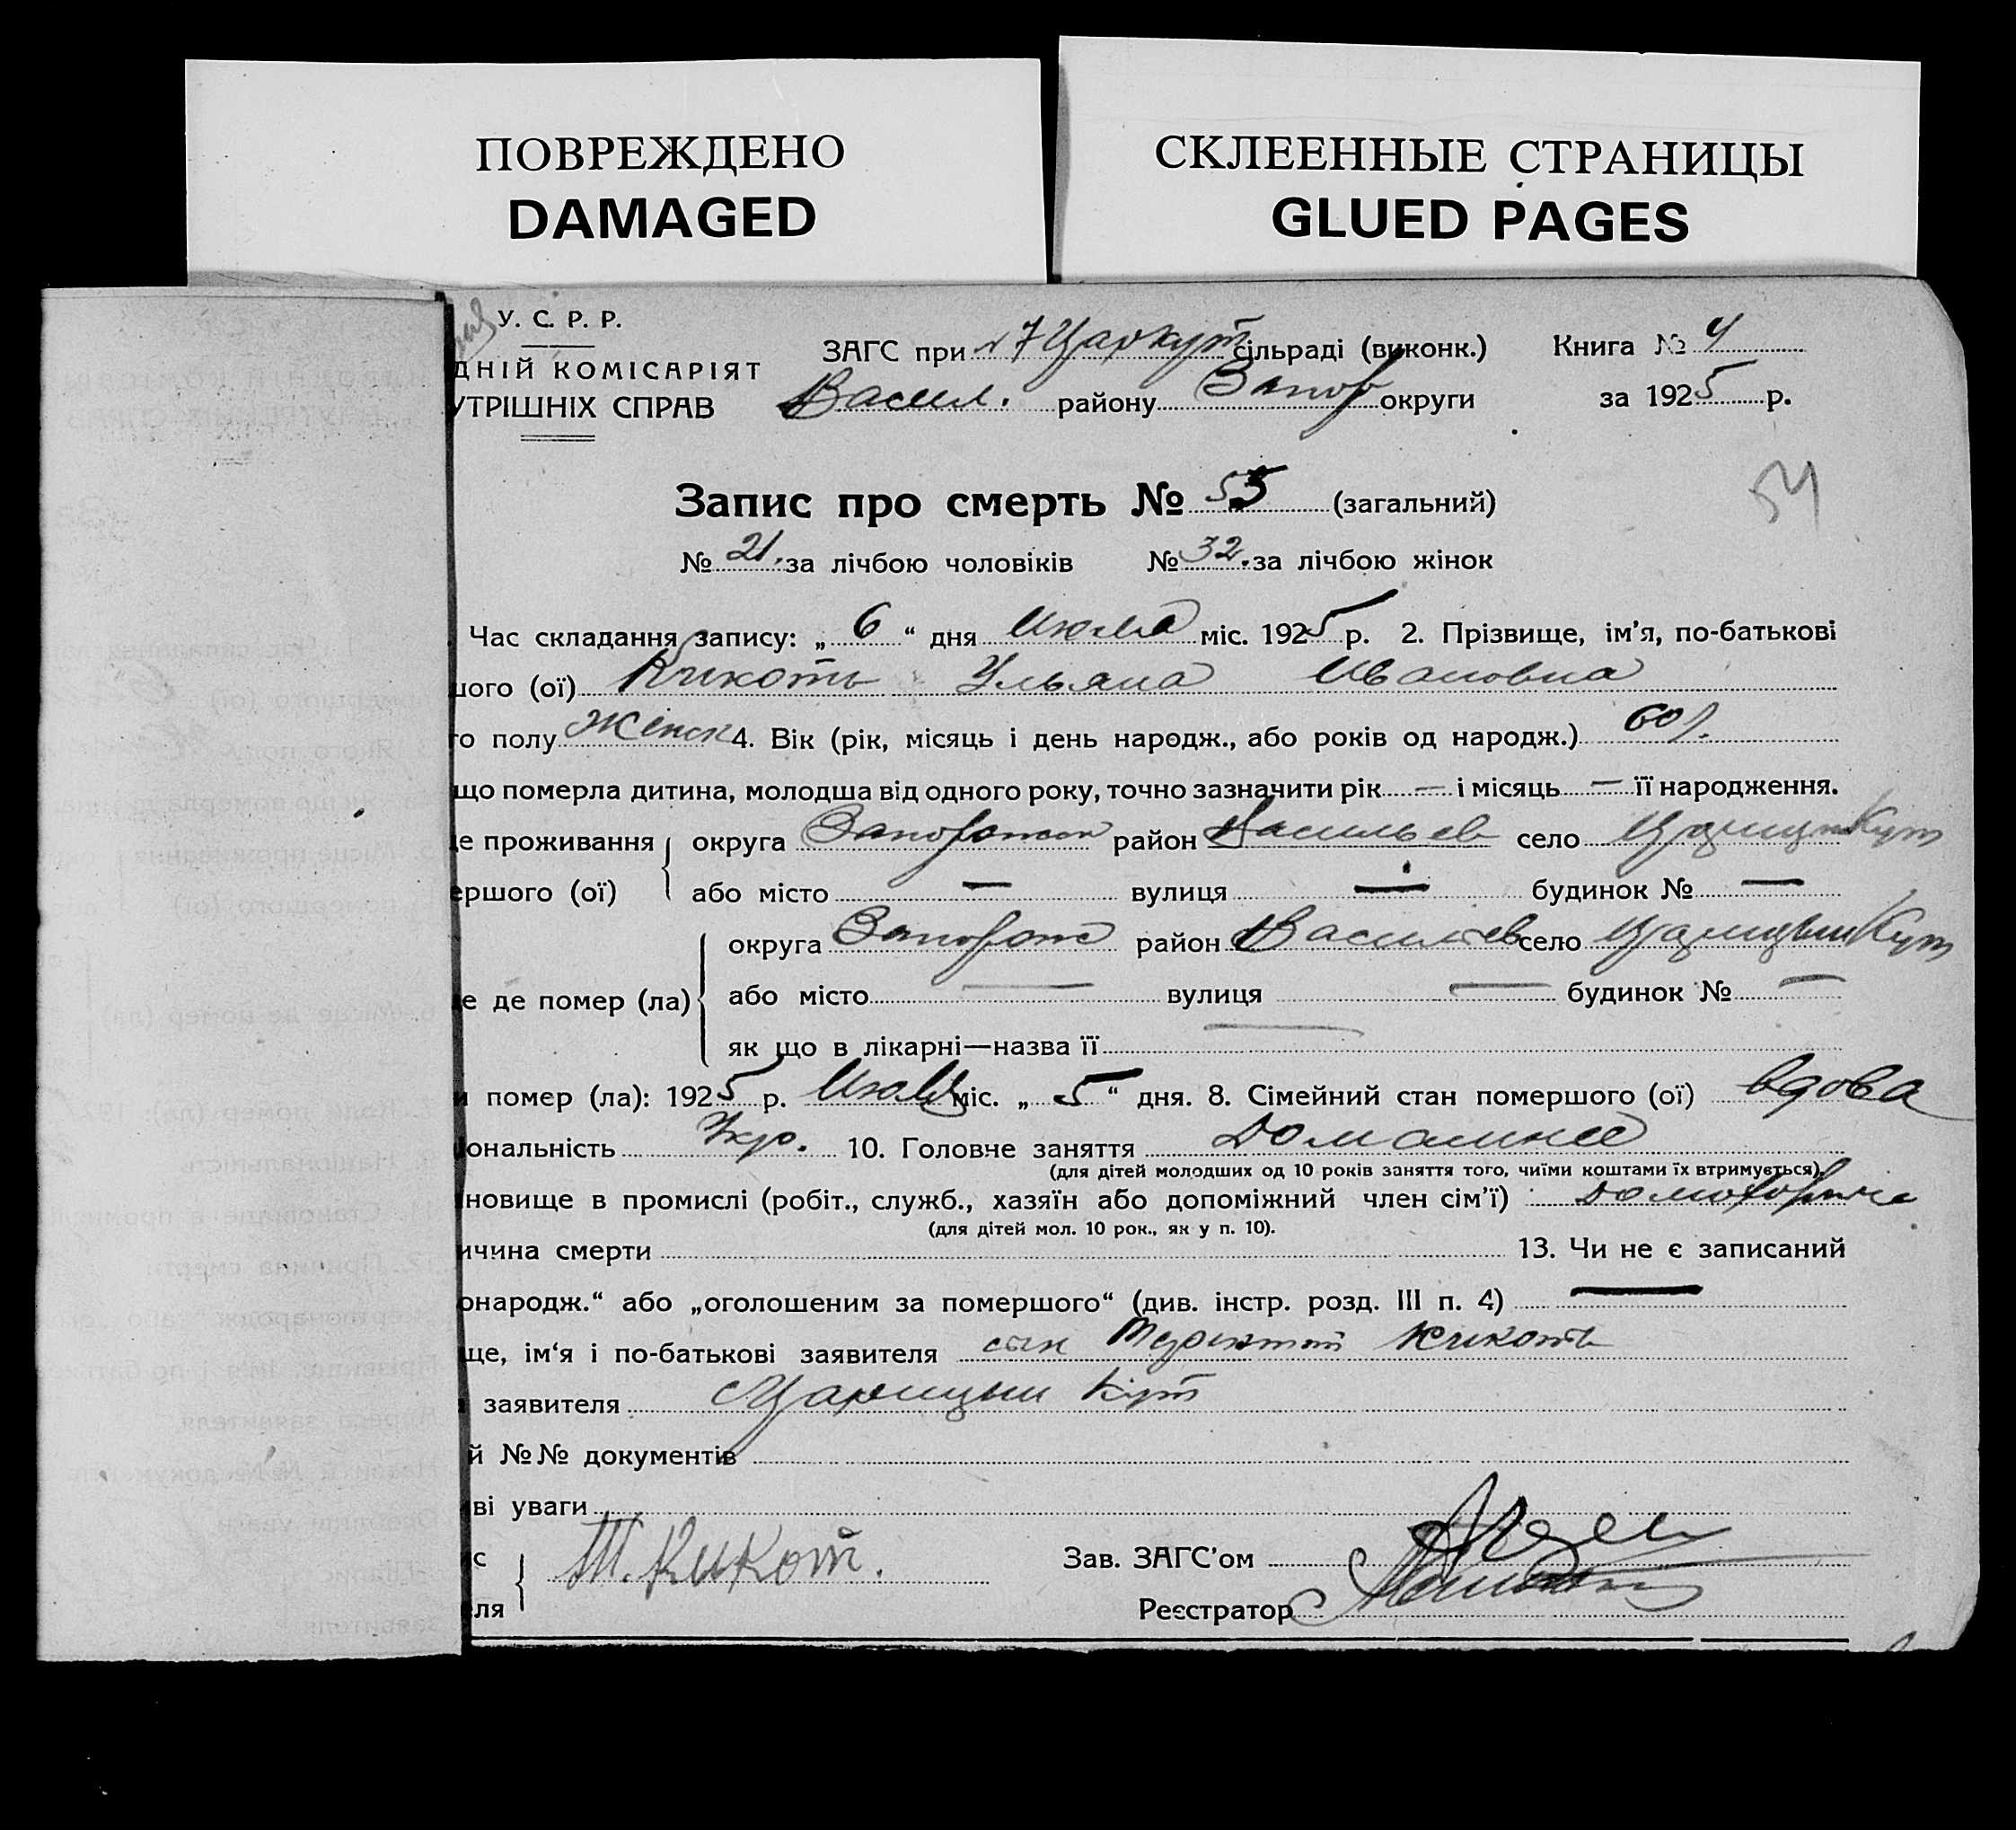 ПОВРЕЖДЕНО
DAMAGED
СКЛЕЕННЫЕ СТРАНИЦЫ
GLUED PAGES
У. С. Р. Р.
ДНІЙ КОМІСАРІЯТ
УТРІШНІХ СПРАВ
ЗАГС при Царкут сільраді (виконк.) Книга № 4
Васил. району Запор округи за 1925 р.
Запис про смерть № 55 (загальний)
54
№ 21. за лічбою чоловіків № 32. за лічбою жінок
Час складання запису: „ 6 “ дня Июля міс. 1925 р. 2. Прізвище, ім’я, по-батькові
шого (ої) Кикоть Ульяна Ивановна
го полу Женск 4. Вік (рік, місяць і день народж., або років од народж.) 60 л.
що померла дитина, молодша від одного року, точно зазначити рік — і місяць — її народження.
це проживання округа район Васильев село Царицын Кут
ершого (ої) або місто — вулиця — будинок № —
округа Запорож район Васильев село Царицын Кут
це де помер (ла) або місто — вулиця — будинок № —
як що в лікарні—назва її —
и помер (ла): 1925 р. Июля міс. „ 5 “ дня. 8. Сімейний стан помершого (ої) вдова
іональність Укр. 10. Головне заняття Домашнее
(для дітей молодших од 10 років заняття того, чиїми коштами їх втримується).
новище в промислі (робіт., служб., хазяїн або допоміжний член сім’ї)
(для дітей мол. 10 рок., як у п. 10).
ичина смерти 13. Чи не є записаний
онародж.“ або „оголошеним за помершого“ (див. інстр. розд. III п. 4) —
ще, ім‘я і по-батькові заявителя сын Кикоть
заявителя Царицын Кут
й №№ документів
ві уваги
с
Т. Кикот. Зав. ЗАГС’ом
еля Реєстратор